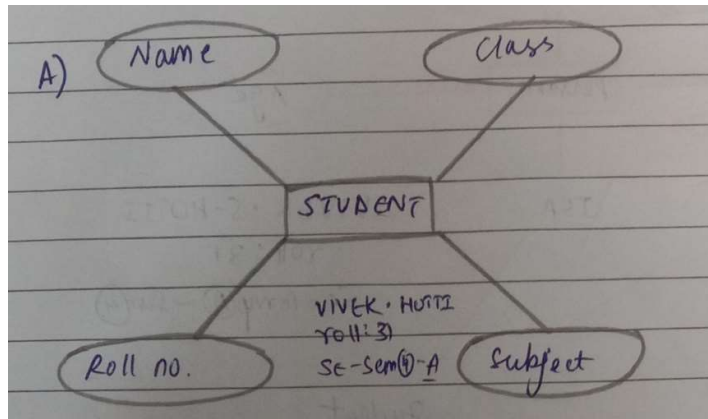 A)
Name
Class
STUDENT
VIVEK. HUTTI
roll: 31
SE-Sem(4)-A
Roll no.
Subject